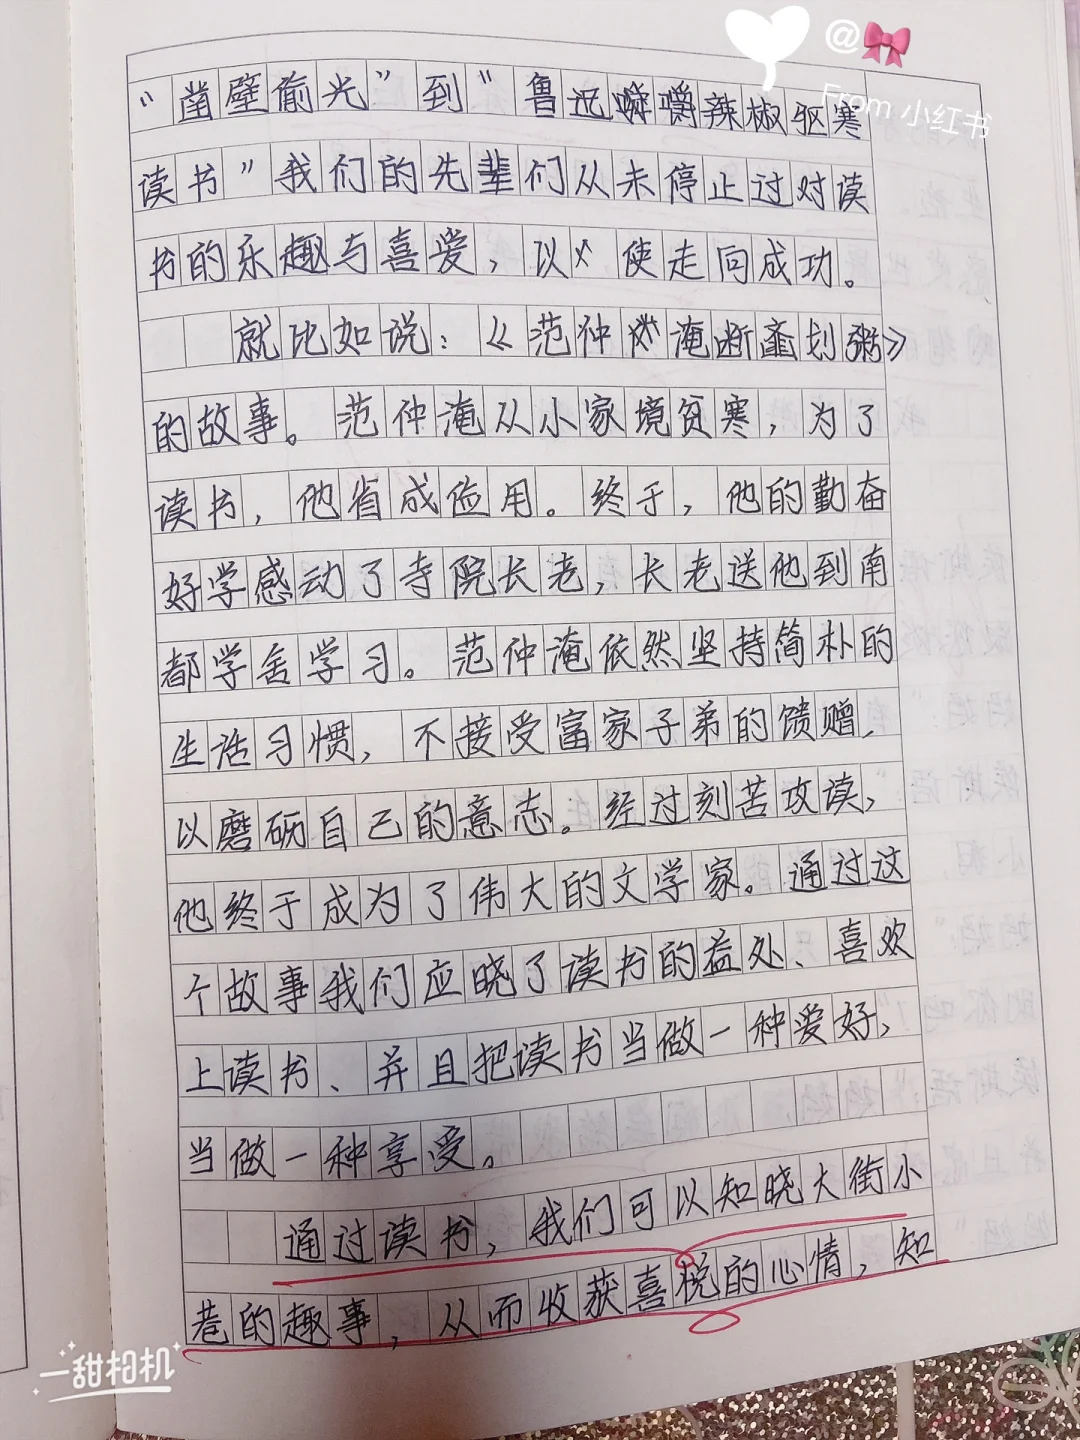 @
From 小红书
“凿壁偷光”到“鲁迅嚼辣椒驱寒
读书”我们的先辈们从未停止过对读
书的乐趣与喜爱，以使走向成功。
就比如说：《范仲淹断齑划粥》
的故事。范仲淹从小家境贫寒，为了
读书，他省成俭用。终于，他的勤奋
好学感动了寺院长老，长老送他到南
都学舍学习。范仲淹依然坚持简朴的
生活习惯，不接受富家子弟的馈赠，
以磨砺自己的意志。经过刻苦攻读，
他终于成为了伟大的文学家。通过这
个故事我们应晓了读书的益处、喜欢
上读书、并且把读书当做一种爱好，
当做一种享受。
通过读书，我们可以知晓大街小
巷的趣事，从而收获喜悦的心情，知
一甜相机